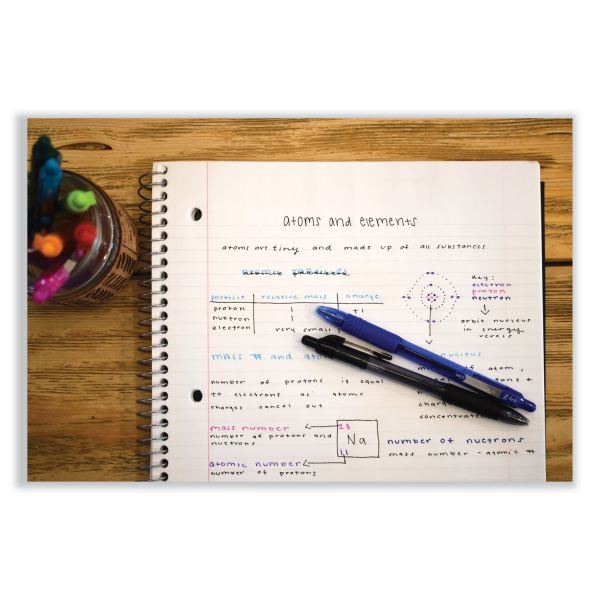 atoms and elements
atoms are tiny and made up of all substances
particle relative mass charge
proton 1 +1
nuetron 1
electron very small
Key:
electron
proton
neutron
orbit nucleus
in energy
MASS # and
nucleus
number of protons is equal
to electrons as atoms
charges cancel out
atom,
mass number
number of protons and
nuetrons
23
Na
11
atomic number
number of protons
number of nuetrons
mass number - atomic #